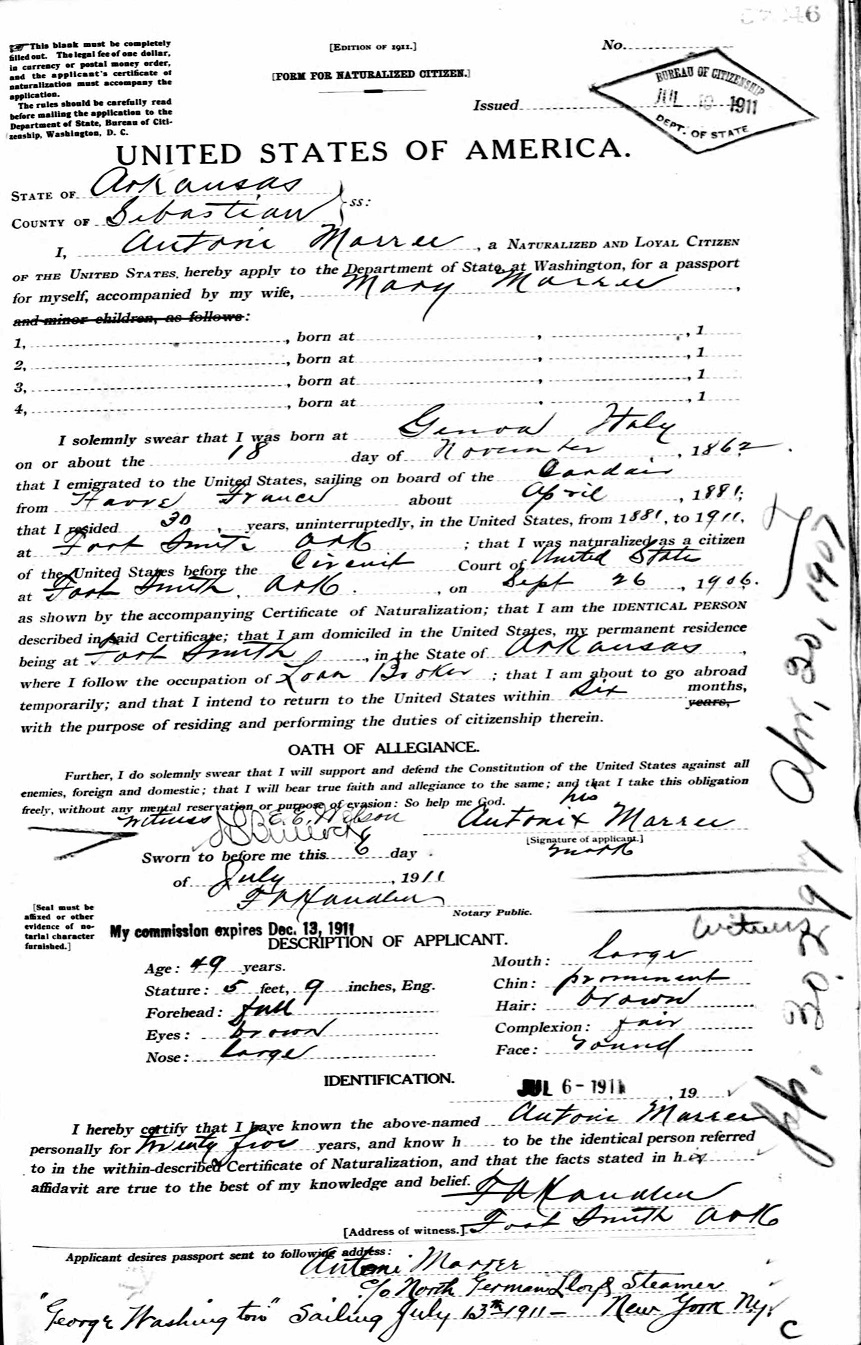 46
☞ This blank must be completely
filled out. The legal fee of one dollar,
in currency or postal money order,
and the applicant's certificate of
naturalization must accompany the
application.
The rules should be carefully read
before mailing the application to the
Department of State, Bureau of Citi-
zenship, Washington, D. C.
[EDITION OF 1911.]
[FORM FOR NATURALIZED CITIZEN.]
No.
Issued
BUREAU OF CITIZENSHIP
JUL 1911
DEPT. OF STATE
UNITED STATES OF AMERICA.
STATE OF Arkansas
COUNTY OF Sebastian } ss:
I, Antoni Marree, a NATURALIZED AND LOYAL CITIZEN
OF THE UNITED STATES, hereby apply to the Department of State at Washington, for a passport
for myself, accompanied by my wife, Mary Marree,
and minor children, as follows:
1, , born at , , 1
2, , born at , , 1
3, , born at , , 1
4, , born at , , 1
I solemnly swear that I was born at Genoa Italy
on or about the 18 day of November, 1862.
that I emigrated to the United States, sailing on board of the
from Havre France about April, 1881;
that I resided 30, years, uninterruptedly, in the United States, from 1881, to 1911,
at Foot Smith Ark ; that I was naturalized as a citizen
of the United States before the Circuit Court of United State
at Foot Smith, Ark., on Sept 26, 1906.
as shown by the accompanying Certificate of Naturalization; that I am the IDENTICAL PERSON
described in said Certificate; that I am domiciled in the United States, my permanent residence
being at Foot Smith, in the State of Arkansas,
where I follow the occupation of Loan Broker ; that I am about to go abroad
temporarily; and that I intend to return to the United States within six months,
years,
with the purpose of residing and performing the duties of citizenship therein.
OATH OF ALLEGIANCE.
Further, I do solemnly swear that I will support and defend the Constitution of the United States against all
enemies, foreign and domestic; that I will bear true faith and allegiance to the same; and that I take this obligation
freely, without any mental reservation or purpose of evasion: So help me God.
his
Witness E. E. Nelson Antoni x Marree
[Signature of applicant.]
mark
Sworn to before me this 6 day
of July, 1911
F A Handlin
Notary Public.
[Seal must be
affixed or other
evidence of no-
tarial character
furnished.]
My commission expires Dec. 13, 1911
Witness
DESCRIPTION OF APPLICANT.
Age: 49 years.
Stature: 5 feet, 9 inches, Eng.
Forehead: full
Eyes: Brown
Nose: large
Mouth: large
Chin: prominent
Hair: brown
Complexion: fair
Face: round
IDENTIFICATION.
JUL 6-1911, 19
I hereby certify that I have known the above-named Antoni Marree
personally for twenty five years, and know h to be the identical person referred
to in the within-described Certificate of Naturalization, and that the facts stated in his
affidavit are true to the best of my knowledge and belief.
F A Handlin
Foot Smith Ark
[Address of witness.]
Applicant desires passport sent to following address:
Antoni Marree
c/o North German Lloyd Steamer
"George Washington" Sailing July 13th 1911 — New York Ny.
C
Apr, 20, 1907